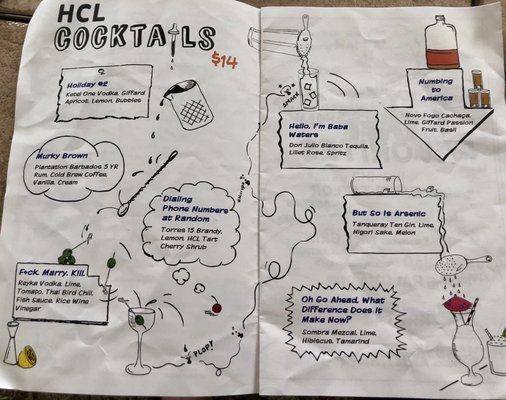 HCL
COCKTAILS
$14
Holiday #2
Ketel One Vodka, Giffard
Apricot, Lemon, Bubbles
Murky Brown
Plantation Barbados 5 YR
Rum, Cold Brew Coffee,
Vanilla, Cream
Dialing
Phone Numbers
at Random
Torres 15 Brandy,
Lemon, HCL Tart
Cherry Shrub
F*ck. Marry. Kill.
Reyka Vodka, Lime,
Tomato, Thai Bird Chili,
Fish Sauce, Rice Wine
Vinegar
PLOP!
SMACK
Hello, I'm Baba
Waters
Don Julio Blanco Tequila,
Lillet Rose, Spritz
Numbing to
America
Novo Fogo Cachaça,
Lime, Giffard Passion
Fruit, Basil
But So Is Arsenic
Tanqueray Ten Gin, Lime,
Nigori Sake, Melon
Oh Go Ahead, What
Difference Does It
Make Now?
Sombra Mezcal, Lime,
Hibiscus, Tamarind